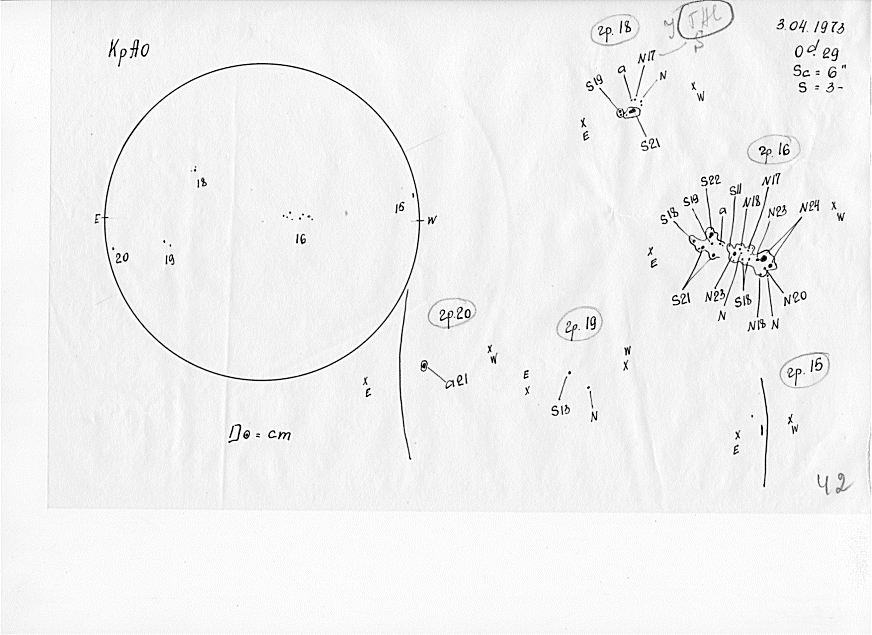 КрАО
3.04.1973
0d.29
Sc = 6"
S = 3-
гр. 18
S19
a
N17
N
S21
x
E
x
W
гр. 16
S22
S19
S18
a
S11
N18
N17
N23
N24
S21
N23
N
S18
N18
N
N20
x
E
x
W
E
W
18
16
15
20
19
гр. 20
a21
x
E
x
W
гр. 19
S13
N
E
x
W
x
гр. 15
x
E
x
W
D⊙ = cm
42